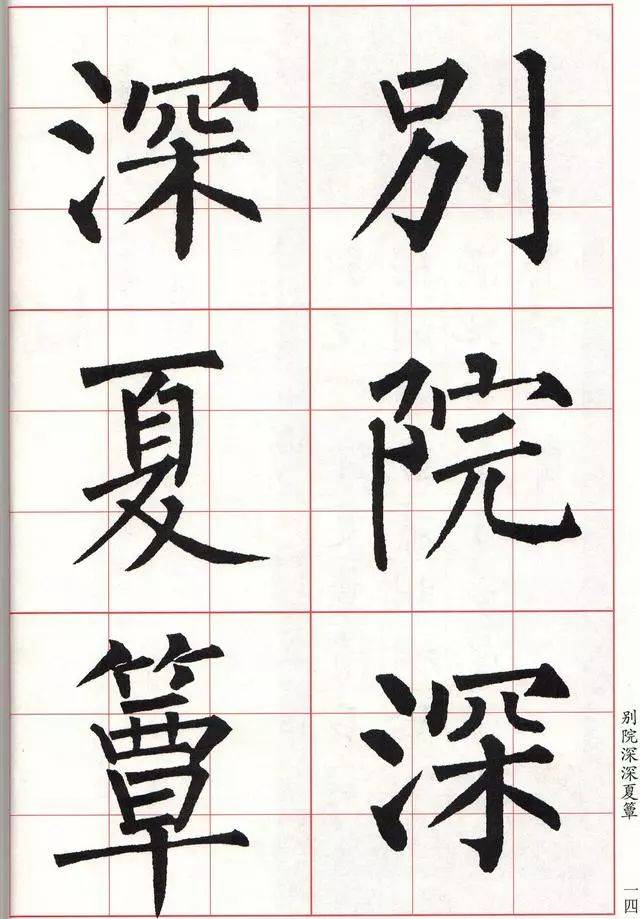 别院深
深夏簟
别院深深夏簟
一四